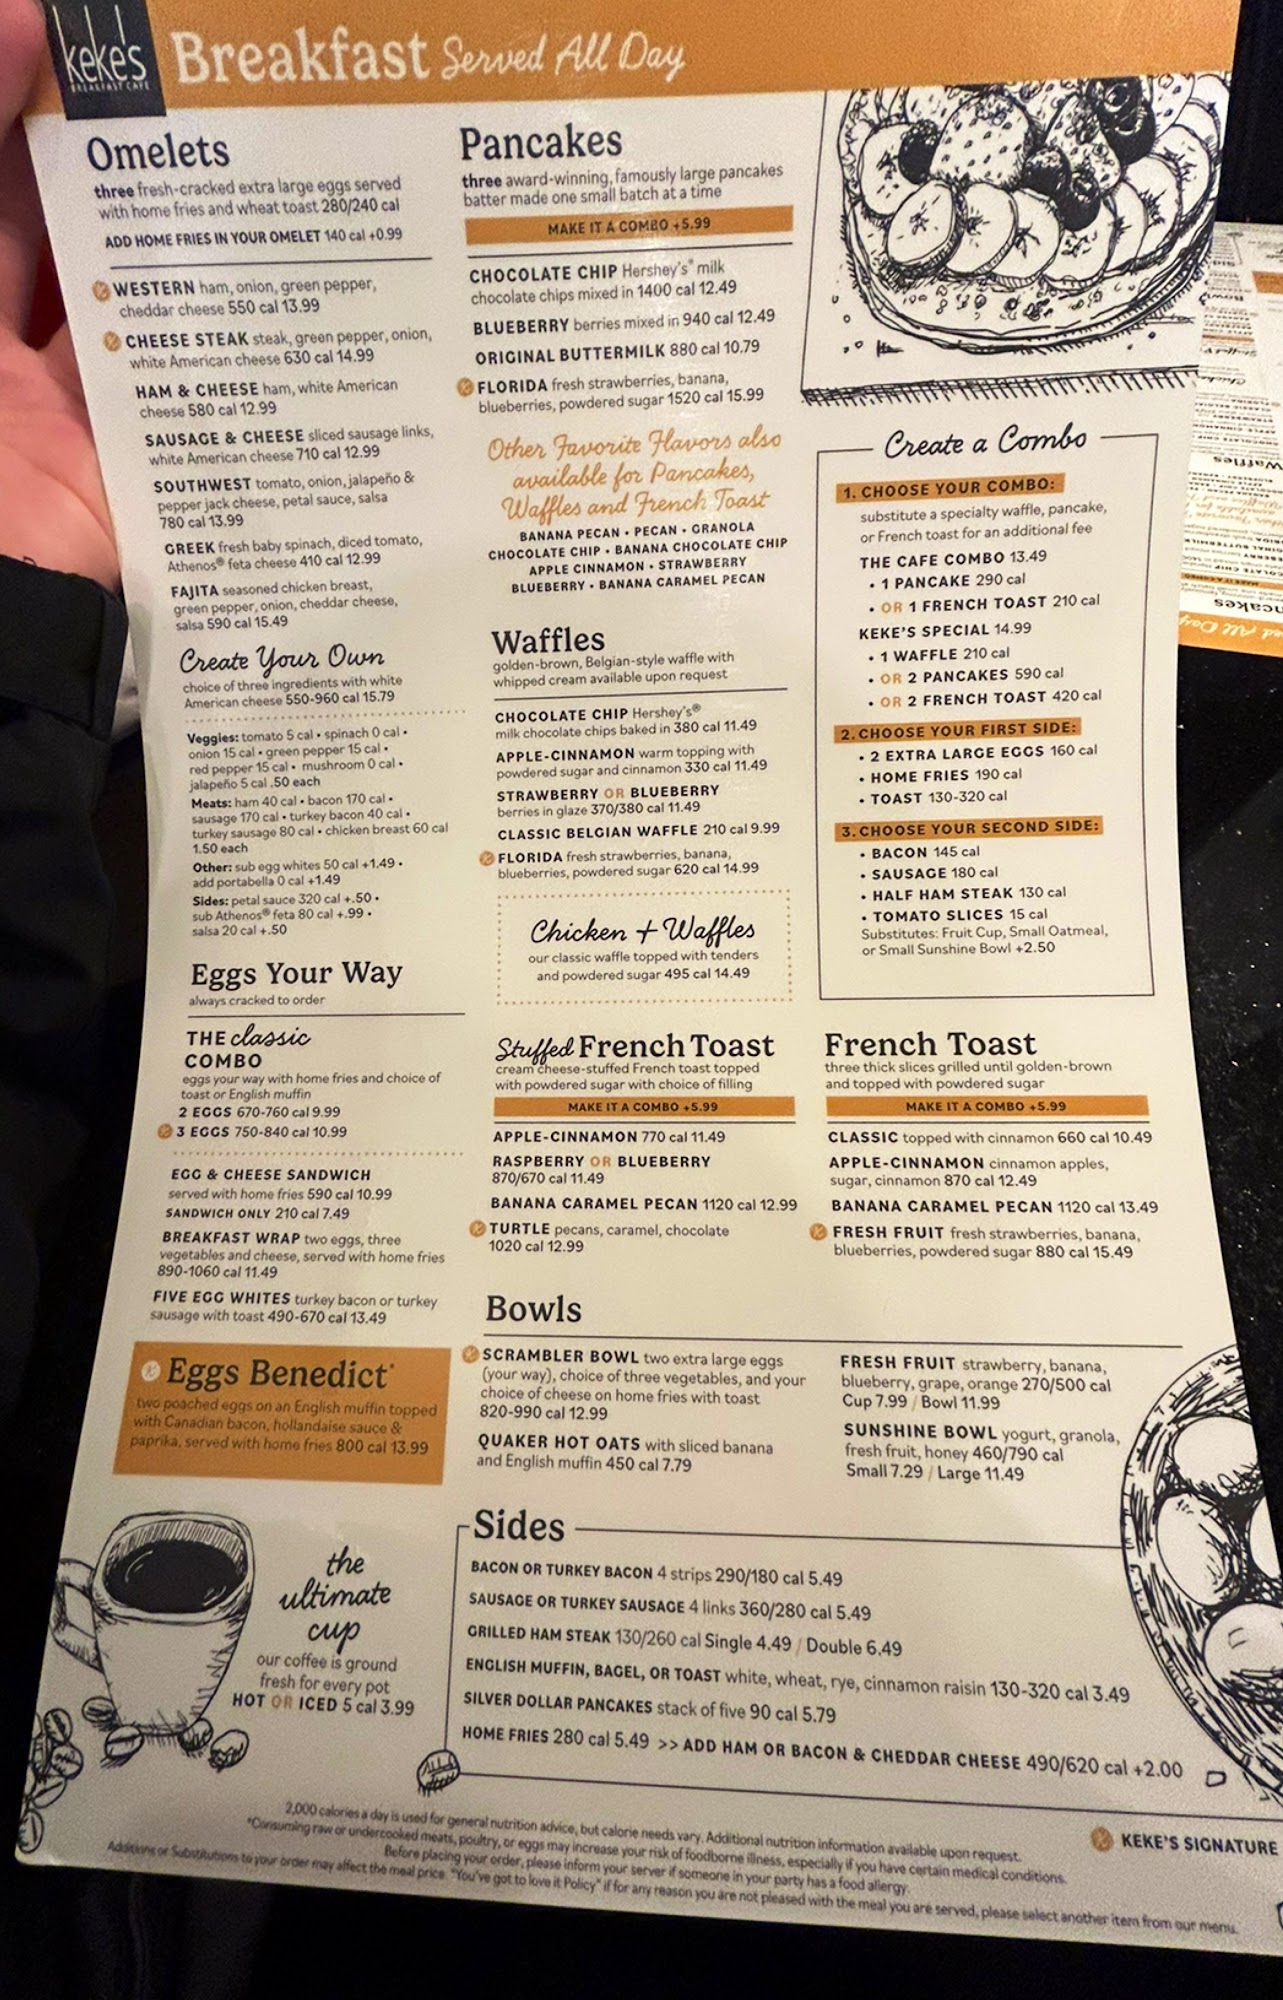 keke's
BREAKFAST CAFE
Breakfast Served All Day
Omelets
three fresh-cracked extra large eggs served
with home fries and wheat toast 280/240 cal
ADD HOME FRIES IN YOUR OMELET 140 cal +0.99
WESTERN ham, onion, green pepper,
cheddar cheese 550 cal 13.99
CHEESE STEAK steak, green pepper, onion,
white American cheese 630 cal 14.99
HAM & CHEESE ham, white American
cheese 580 cal 12.99
SAUSAGE & CHEESE sliced sausage links,
white American cheese 710 cal 12.99
SOUTHWEST tomato, onion, jalapeño &
pepper jack cheese, petal sauce, salsa
780 cal 13.99
GREEK fresh baby spinach, diced tomato,
Athenos® feta cheese 410 cal 12.99
FAJITA seasoned chicken breast,
green pepper, onion, cheddar cheese,
salsa 590 cal 15.49
Create Your Own
choice of three ingredients with white
American cheese 550-960 cal 15.79
Veggies: tomato 5 cal • spinach 0 cal •
onion 15 cal • green pepper 15 cal •
red pepper 15 cal • mushroom 0 cal •
jalapeño 5 cal .50 each
Meats: ham 40 cal • bacon 170 cal •
sausage 170 cal • turkey bacon 40 cal •
turkey sausage 80 cal • chicken breast 60 cal
1.50 each
Other: sub egg whites 50 cal +1.49 •
add portabella 0 cal +1.49
Sides: petal sauce 320 cal +.50 •
sub Athenos® feta 80 cal +.99 •
salsa 20 cal +.50
Eggs Your Way
always cracked to order
THE classic
COMBO
eggs your way with home fries and choice of
toast or English muffin
2 EGGS 670-760 cal 9.99
3 EGGS 750-840 cal 10.99
EGG & CHEESE SANDWICH
served with home fries 590 cal 10.99
SANDWICH ONLY 210 cal 7.49
BREAKFAST WRAP two eggs, three
vegetables and cheese, served with home fries
890-1060 cal 11.49
FIVE EGG WHITES turkey bacon or turkey
sausage with toast 490-670 cal 13.49
Eggs Benedict*
two poached eggs on an English muffin topped
with Canadian bacon, hollandaise sauce &
paprika, served with home fries 800 cal 13.99
the
ultimate
cup
our coffee is ground
fresh for every pot
HOT OR ICED 5 cal 3.99
Pancakes
three award-winning, famously large pancakes
batter made one small batch at a time
MAKE IT A COMBO +5.99
CHOCOLATE CHIP Hershey's® milk
chocolate chips mixed in 1400 cal 12.49
BLUEBERRY berries mixed in 940 cal 12.49
ORIGINAL BUTTERMILK 880 cal 10.79
FLORIDA fresh strawberries, banana,
blueberries, powdered sugar 1520 cal 15.99
Other Favorite Flavors also
available for Pancakes,
Waffles and French Toast
BANANA PECAN • PECAN • GRANOLA
CHOCOLATE CHIP • BANANA CHOCOLATE CHIP
APPLE CINNAMON • STRAWBERRY
BLUEBERRY • BANANA CARAMEL PECAN
Waffles
golden-brown, Belgian-style waffle with
whipped cream available upon request
CHOCOLATE CHIP Hershey's®
milk chocolate chips baked in 380 cal 11.49
APPLE-CINNAMON warm topping with
powdered sugar and cinnamon 330 cal 11.49
STRAWBERRY OR BLUEBERRY
berries in glaze 370/380 cal 11.49
CLASSIC BELGIAN WAFFLE 210 cal 9.99
FLORIDA fresh strawberries, banana,
blueberries, powdered sugar 620 cal 14.99
Chicken + Waffles
our classic waffle topped with tenders
and powdered sugar 495 cal 14.49
Create a Combo
1. CHOOSE YOUR COMBO:
substitute a specialty waffle, pancake,
or French toast for an additional fee
THE CAFE COMBO 13.49
• 1 PANCAKE 290 cal
• OR 1 FRENCH TOAST 210 cal
KEKE'S SPECIAL 14.99
• 1 WAFFLE 210 cal
• OR 2 PANCAKES 590 cal
• OR 2 FRENCH TOAST 420 cal
2. CHOOSE YOUR FIRST SIDE:
• 2 EXTRA LARGE EGGS 160 cal
• HOME FRIES 190 cal
• TOAST 130-320 cal
3. CHOOSE YOUR SECOND SIDE:
• BACON 145 cal
• SAUSAGE 180 cal
• HALF HAM STEAK 130 cal
• TOMATO SLICES 15 cal
Substitutes: Fruit Cup, Small Oatmeal,
or Small Sunshine Bowl +2.50
Stuffed French Toast
cream cheese-stuffed French toast topped
with powdered sugar with choice of filling
MAKE IT A COMBO +5.99
APPLE-CINNAMON 770 cal 11.49
RASPBERRY OR BLUEBERRY
870/670 cal 11.49
BANANA CARAMEL PECAN 1120 cal 12.99
TURTLE pecans, caramel, chocolate
1020 cal 12.99
French Toast
three thick slices grilled until golden-brown
and topped with powdered sugar
MAKE IT A COMBO +5.99
CLASSIC topped with cinnamon 660 cal 10.49
APPLE-CINNAMON cinnamon apples,
sugar, cinnamon 870 cal 12.49
BANANA CARAMEL PECAN 1120 cal 13.49
FRESH FRUIT fresh strawberries, banana,
blueberries, powdered sugar 880 cal 15.49
Bowls
SCRAMBLER BOWL two extra large eggs
(your way), choice of three vegetables, and your
choice of cheese on home fries with toast
820-990 cal 12.99
QUAKER HOT OATS with sliced banana
and English muffin 450 cal 7.79
FRESH FRUIT strawberry, banana,
blueberry, grape, orange 270/500 cal
Cup 7.99 / Bowl 11.99
SUNSHINE BOWL yogurt, granola,
fresh fruit, honey 460/790 cal
Small 7.29 / Large 11.49
Sides
BACON OR TURKEY BACON 4 strips 290/180 cal 5.49
SAUSAGE OR TURKEY SAUSAGE 4 links 360/280 cal 5.49
GRILLED HAM STEAK 130/260 cal Single 4.49 / Double 6.49
ENGLISH MUFFIN, BAGEL, OR TOAST white, wheat, rye, cinnamon raisin 130-320 cal 3.49
SILVER DOLLAR PANCAKES stack of five 90 cal 5.79
HOME FRIES 280 cal 5.49 >> ADD HAM OR BACON & CHEDDAR CHEESE 490/620 cal +2.00
KEKE'S SIGNATURE
2,000 calories a day is used for general nutrition advice, but calorie needs vary. Additional nutrition information available upon request.
*Consuming raw or undercooked meats, poultry, or eggs may increase your risk of foodborne illness, especially if you have certain medical conditions.
Before placing your order, please inform your server if someone in your party has a food allergy.
Additions or Substitutions to your order may affect the meal price. "You've got to love it Policy" if for any reason you are not pleased with the meal you are served, please select another item from our menu.